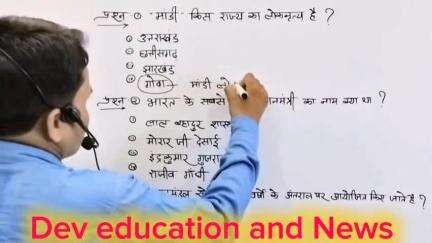 प्रश्न ① "मांडी" किस राज्य का लोकनृत्य है ?
① उत्तराखंड
② छत्तीसगढ़
③ झारखंड
④ गोवा — मांडी
प्रश्न ② भारत के सबसे का नाम क्या था ?
① लाल बहादुर
② मोरार जी देसाई
③ इंद्रकुमार गुजरा
④ राजीव गाँधी
के अंतराल पर आयोजित किए जाते है ?
Dev education and News